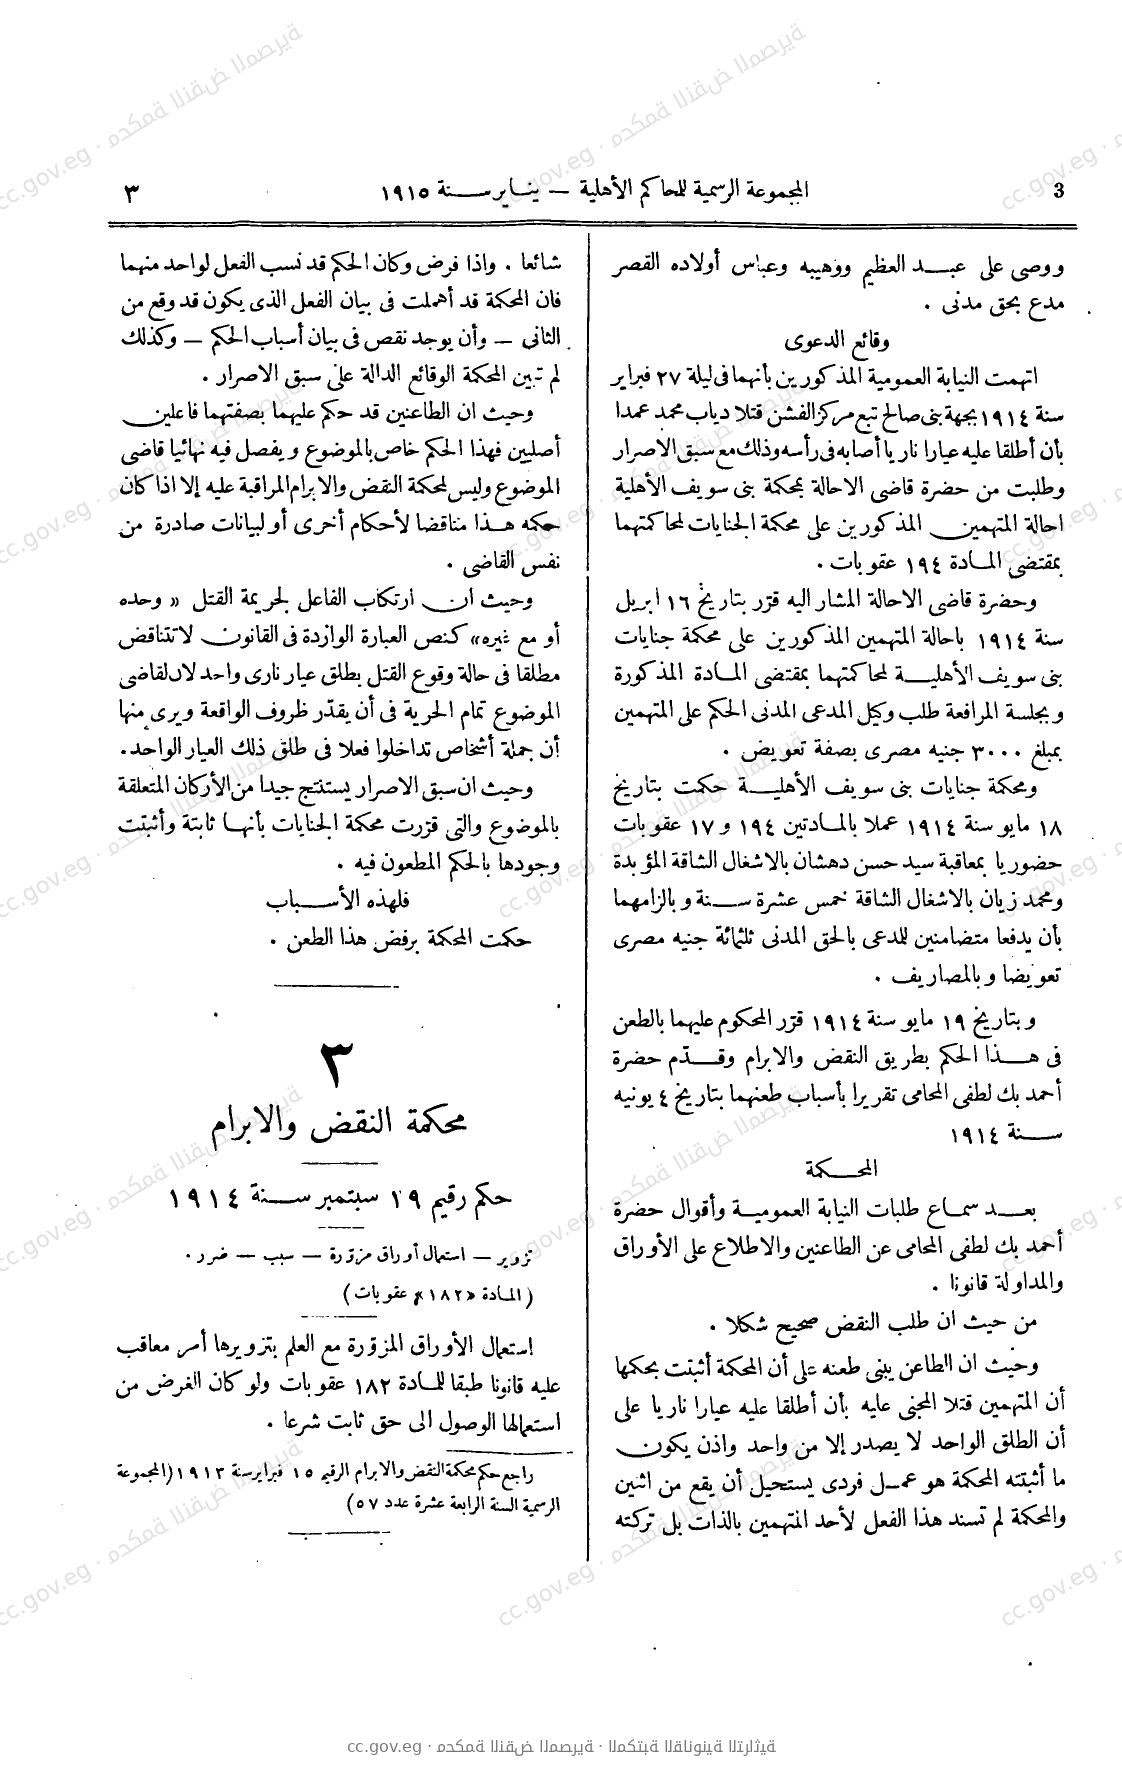 3
المجموعة الرسمية للمحاكم الأهلية — يناير سنة ١٩١٥
٣
ووصى على عبد العظيم ووهيبه وعباس أولاده القصر
مدع بحق مدنى .
وقائع الدعوى
اتهمت النيابة العمومية المذكورين بأنهما فى ليلة ٢٧ فبراير
سنة ١٩١٤ بجهة بنى صالح تبع مركز الفشن قتلا دياب محمد عمدا
بأن أطلقا عليه عيارا ناريا أصابه فى رأسه وذلك مع سبق الاصرار
وطلبت من حضرة قاضى الاحالة بمحكمة بنى سويف الأهلية
احالة المتهمين المذكورين على محكمة الجنايات لمحاكمتهما
بمقتضى المادة ١٩٤ عقوبات .
وحضرة قاضى الاحالة المشار اليه قرّر بتاريخ ١٦ ابريل
سنة ١٩١٤ باحالة المتهمين المذكورين على محكمة جنايات
بنى سويف الأهلية لمحاكمتهما بمقتضى المادة المذكورة
وبجلسة المرافعة طلب وكيل المدعى المدنى الحكم على المتهمين
بمبلغ ٣٠٠٠ جنيه مصرى بصفة تعويض .
ومحكمة جنايات بنى سويف الأهلية حكمت بتاريخ
١٨ مايو سنة ١٩١٤ عملا بالمادتين ١٩٤ و ١٧ عقوبات
حضوريا بمعاقبة سيد حسن دهشان بالاشغال الشاقة المؤبدة
ومحمد زيان بالاشغال الشاقة خمس عشرة سنة وبالزامهما
بأن يدفعا متضامنين للمدعى بالحق المدنى ثلثمائة جنيه مصرى
تعويضا وبالمصاريف .
وبتاريخ ١٩ مايو سنة ١٩١٤ قرّر المحكوم عليهما بالطعن
فى هذا الحكم بطريق النقض والابرام وقدّم حضرة
أحمد بك لطفى المحامى تقريرا بأسباب طعنهما بتاريخ ٤ يونيه
سنة ١٩١٤
المحكمة
بعد سماع طلبات النيابة العمومية وأقوال حضرة
أحمد بك لطفى المحامى عن الطاعنين والاطلاع على الأوراق
والمداولة قانونا .
من حيث ان طلب النقض صحيح شكلا .
وحيث ان الطاعن يبنى طعنه على أن المحكمة أثبتت بحكمها
أن المتهمين قتلا المجنى عليه بأن أطلقا عليه عيارا ناريا على
أن الطلق الواحد لا يصدر إلا من واحد واذن يكون
ما أثبتته المحكمة هو عمل فردى يستحيل أن يقع من اثنين
والمحكمة لم تسند هذا الفعل لأحد المتهمين بالذات بل تركته
شائعا . واذا فرض وكان الحكم قد نسب الفعل لواحد منهما
فان المحكمة قد أهملت فى بيان الفعل الذى يكون قد وقع من
الثانى — وأن يوجد نقص فى بيان أسباب الحكم — وكذلك
لم تبين المحكمة الوقائع الدالة على سبق الاصرار .
وحيث ان الطاعنين قد حكم عليهما بصفتهما فاعلين
أصليين فهذا الحكم خاص بالموضوع ويفصل فيه نهائيا قاضى
الموضوع وليس لمحكمة النقض والابرام المراقبة عليه إلا اذا كان
حكمه هذا مناقضا لأحكام أخرى أو لبيانات صادرة من
نفس القاضى .
وحيث ان ارتكاب الفاعل لجريمة القتل « وحده
أو مع غيره» كنص العبارة الواردة فى القانون لا تتناقض
مطلقا فى حالة وقوع القتل بطلق عيار نارى واحد لان لقاضى
الموضوع تمام الحرية فى أن يقدّر ظروف الواقعة ويرى منها
أن جملة أشخاص تداخلوا فعلا فى طلق ذلك العيار الواحد .
وحيث ان سبق الاصرار يستنتج جيدا من الأركان المتعلقة
بالموضوع والتى قرّرت محكمة الجنايات بأنها ثابتة وأثبتت
وجودها بالحكم المطعون فيه .
فلهذه الأسباب
حكمت المحكمة برفض هذا الطعن .
٣
محكمة النقض والابرام
حكم رقيم ١٩ سبتمبر سنة ١٩١٤
تزوير — استعمال أوراق مزوّرة — سبب — ضرر .
(المادة «١٨٢» عقوبات)
استعمال الأوراق المزوّرة مع العلم بتزويرها أمر معاقب
عليه قانونا طبقا للمادة ١٨٢ عقوبات ولو كان الغرض من
استعمالها الوصول الى حق ثابت شرعا .
راجع حكم محكمة النقض والابرام الرقيم ١٥ فبراير سنة ١٩١٣ (المجموعة
الرسمية السنة الرابعة عشرة عدد ٥٧)
cc.gov.eg · محكمة النقض المصرية · المكتبة القانونية التراثية